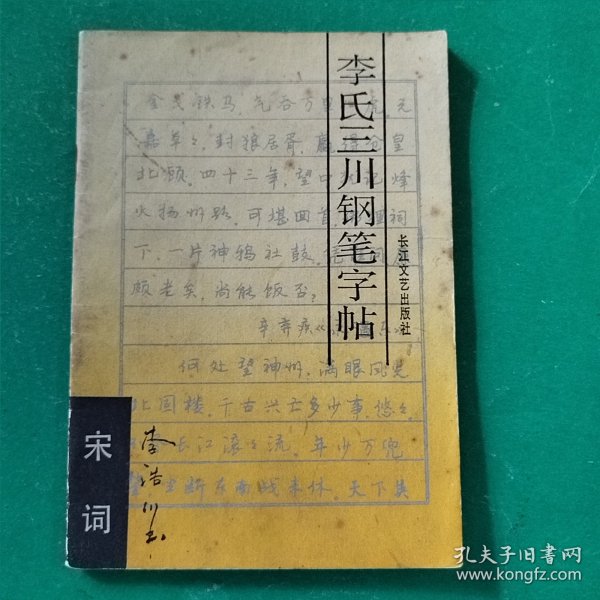 李氏三川钢笔字帖
长江文艺出版社
金戈铁马，气吞万里
嘉草々，封狼居胥，赢得仓皇
北顾。四十三年，望中犹记，烽
火扬州路。可堪回首，祠
下，一片神鸦社鼓。凭
颇老矣，尚能饭否？
辛弃疾《
何处望神州，满眼风光
北固楼。千古兴亡多少事，悠々。
长江滚々流。年少万兜
断东南战未休。天下英
宋词
李浩川书
孔夫子旧书网
www.kongfz.com